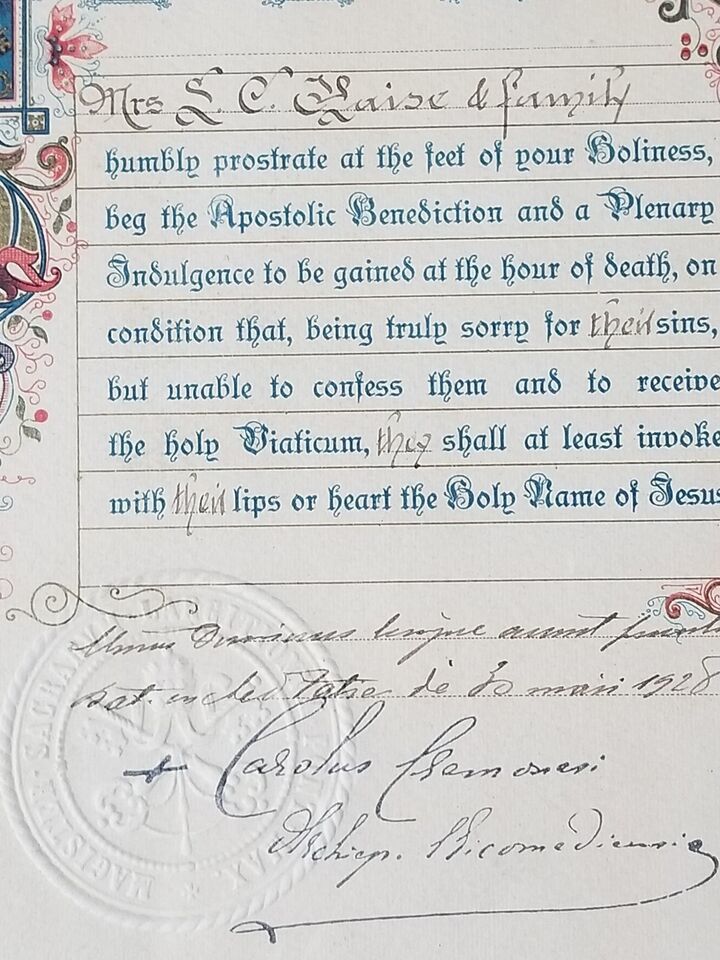 Mrs L. C. & family
humbly prostrate at the feet of your Holiness,
beg the Apostolic Benediction and a Plenary
Indulgence to be gained at the hour of death, on
condition that, being truly sorry for their sins,
but unable to confess them and to receive
the holy Viaticum, they shall at least invoke
with their lips or heart the Holy Name of Jesus
1928
+ Carolus Cremonesi
Archiep. Nicomediensis
MAGISTER SACRARI